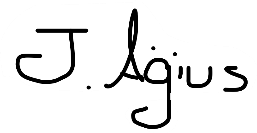 J. Agius